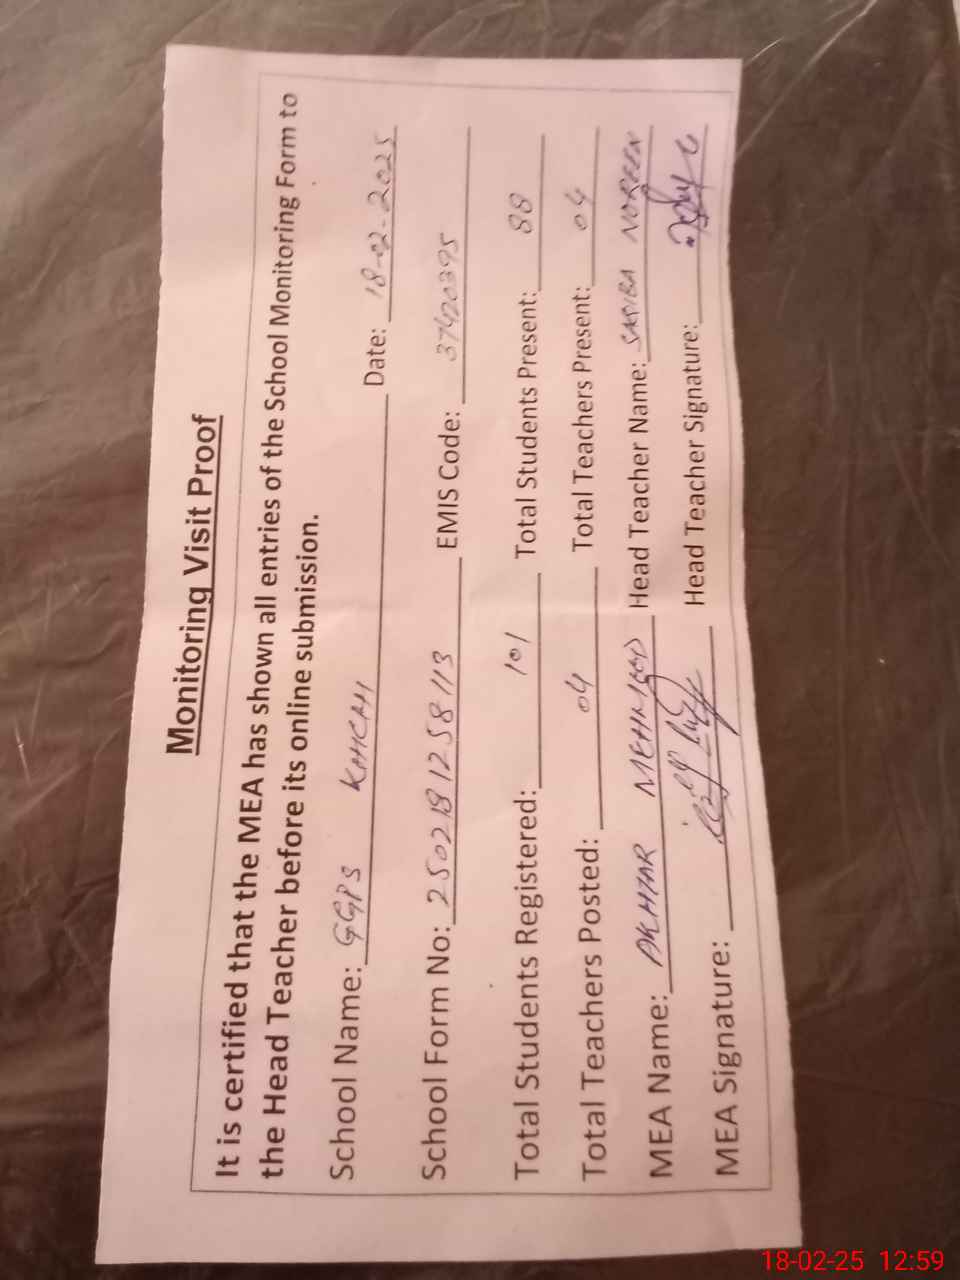 Monitoring Visit Proof
It is certified that the MEA has shown all entries of the School Monitoring Form to
the Head Teacher before its online submission.
School Name: GGPS Date: 18-02-2025
School Form No: 2502181258113 EMIS Code: 37420395
Total Students Registered: 101 Total Students Present: 88
Total Teachers Posted: 04 Total Teachers Present: 04
MEA Name: AKHTAR MEHMOOD Head Teacher Name: NOREEN
MEA Signature: Head Teacher Signature:
18-02-25 12:59